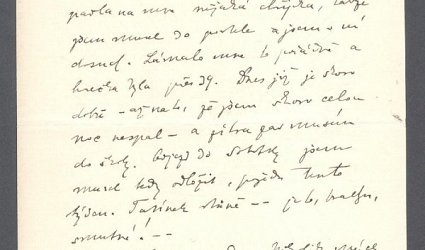 padla na mne nějaká chřipka, takže
jsem musel do postele a jsem v ní
dosud. Lámalo mne to pořádně a
horečka byla přes 39. Dnes již je skoro
dobře – až na to, že jsem skoro celou
noc nespal – a zítra par musím
do školy. do jsem
musel tedy odložit, pojedu tento
týden. Tatínek stůně – je to, 
smutné! –